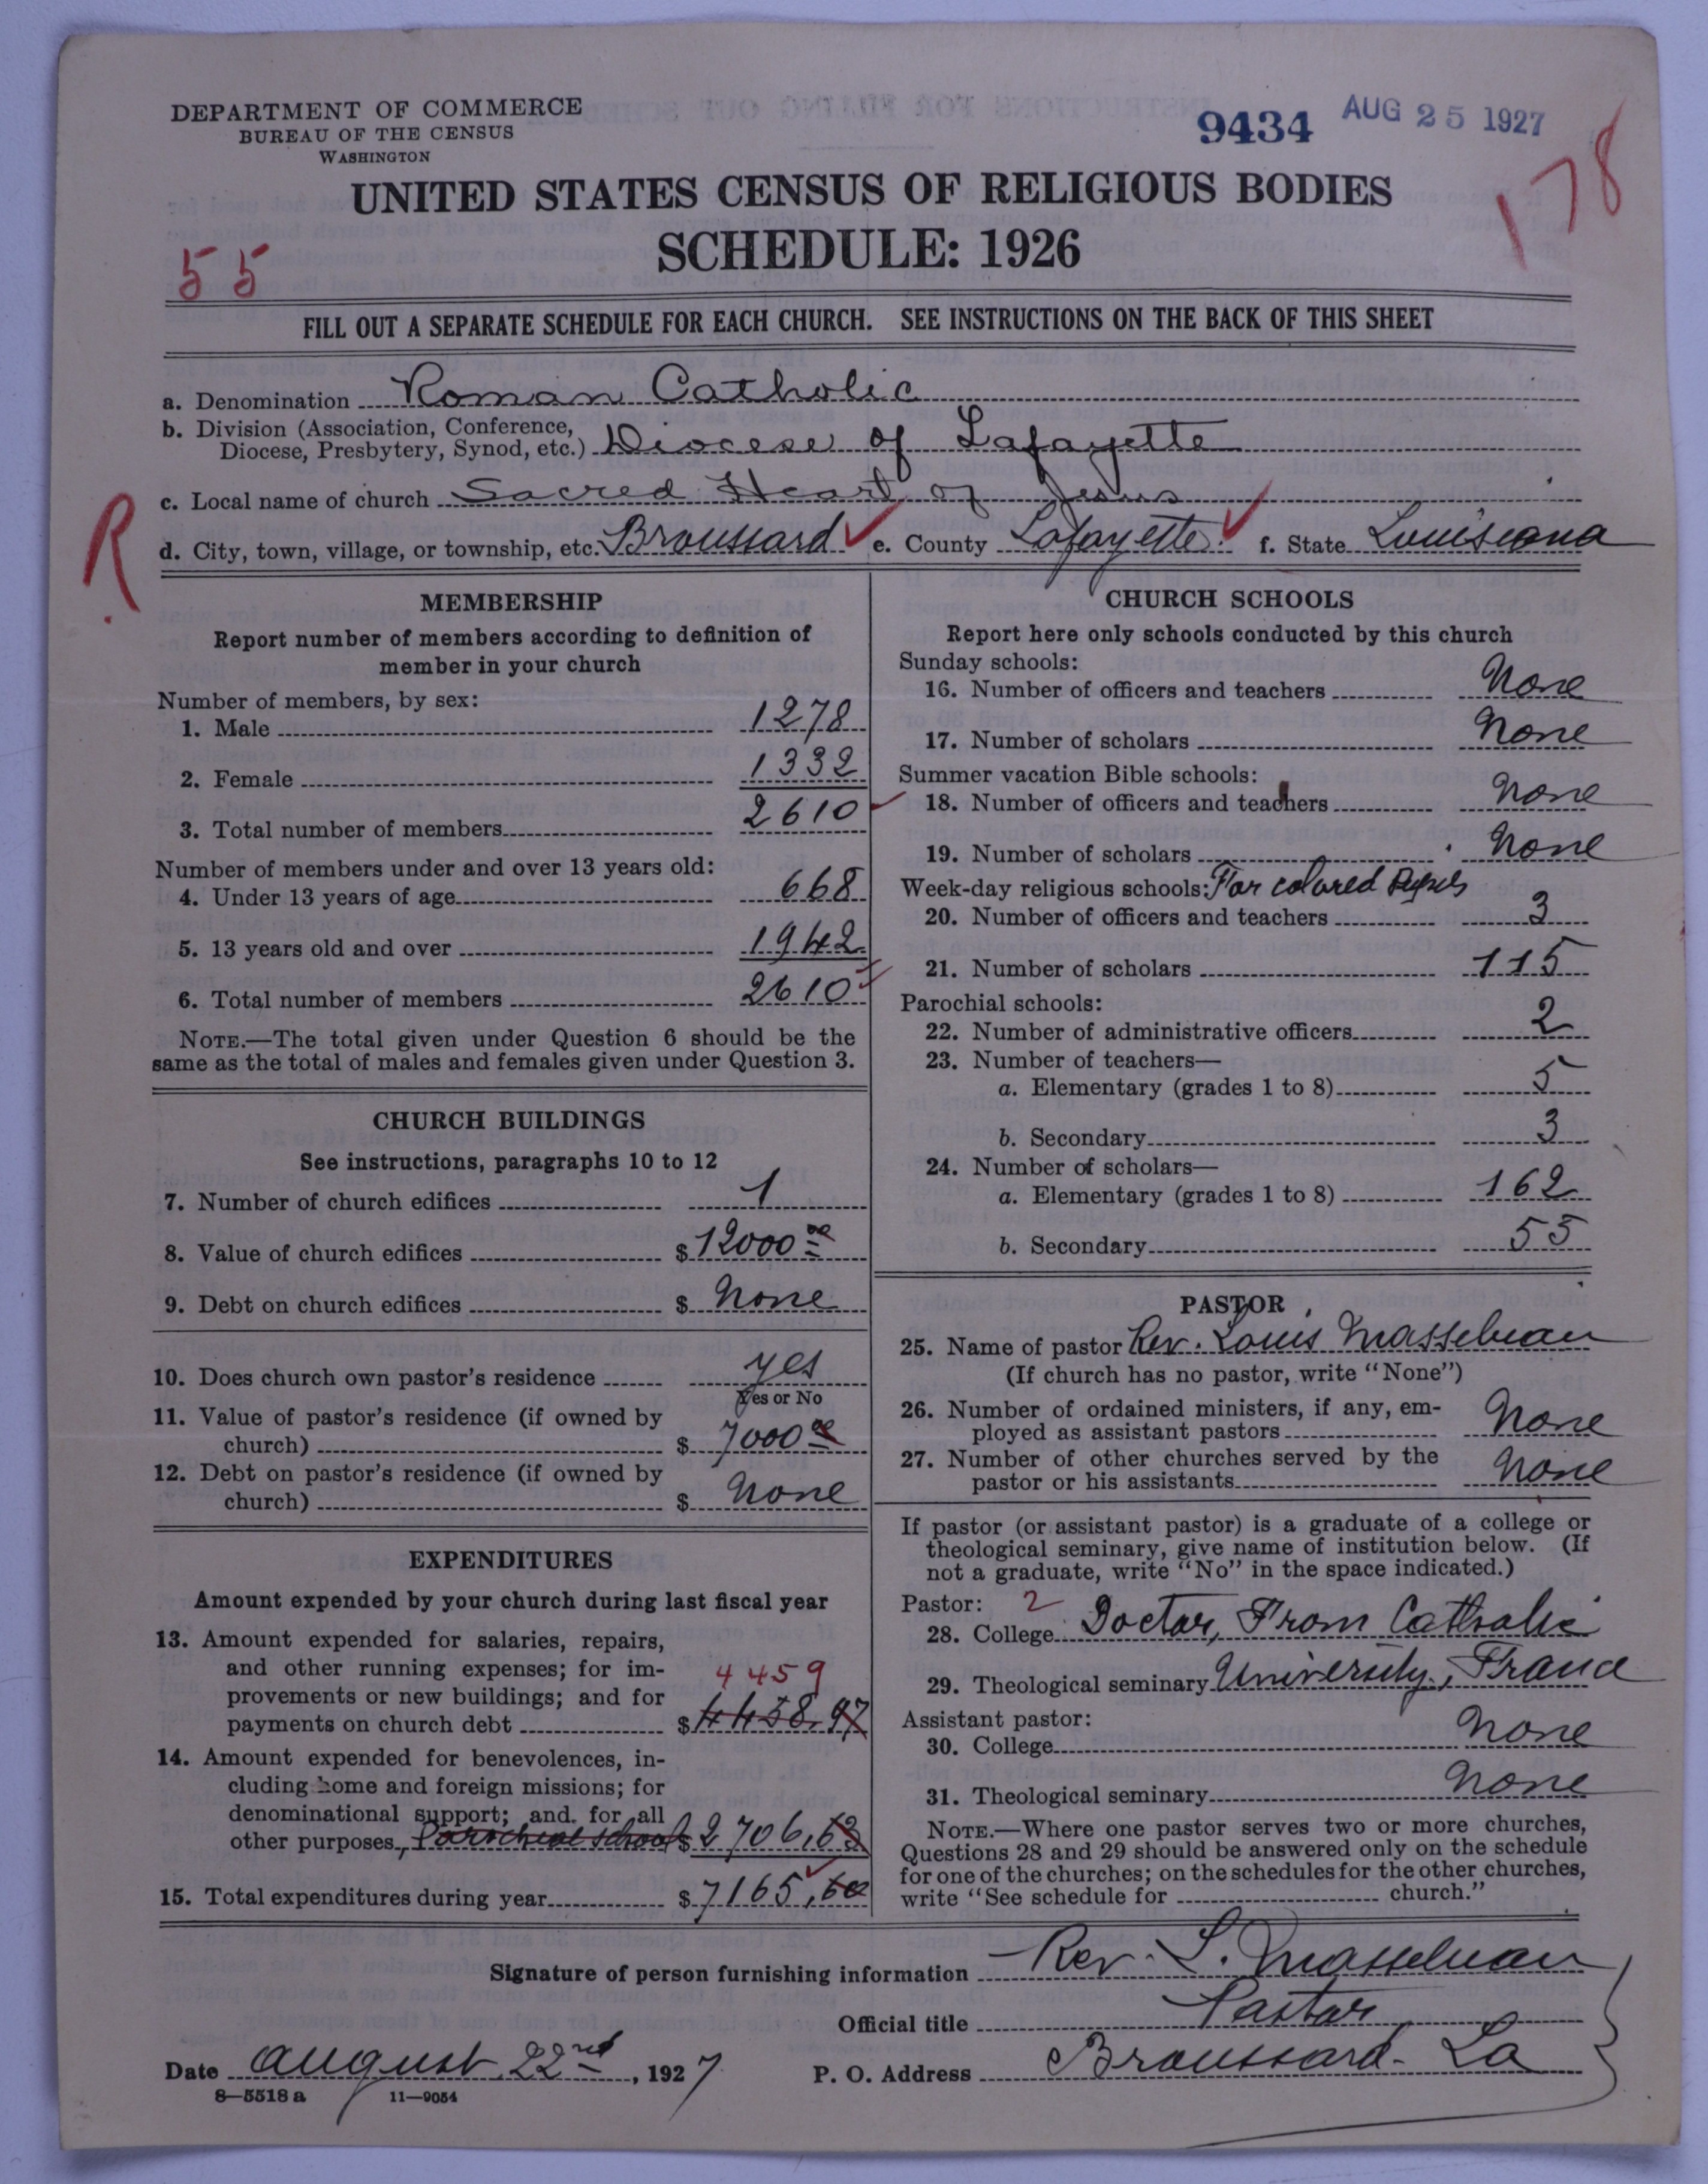 DEPARTMENT OF COMMERCE
BUREAU OF THE CENSUS
WASHINGTON
9434 AUG 25 1927
178
UNITED STATES CENSUS OF RELIGIOUS BODIES
SCHEDULE: 1926
55
FILL OUT A SEPARATE SCHEDULE FOR EACH CHURCH. SEE INSTRUCTIONS ON THE BACK OF THIS SHEET
a. Denomination Roman Catholic
b. Division (Association, Conference,
Diocese, Presbytery, Synod, etc.) Diocese of Lafayette
c. Local name of church Sacred Heart of Jesus
R
d. City, town, village, or township, etc. Broussard e. County Lafayette f. State Louisiana
MEMBERSHIP
Report number of members according to definition of
member in your church
Number of members, by sex:
1. Male 1278
2. Female 1332
3. Total number of members 2610
Number of members under and over 13 years old:
4. Under 13 years of age 668
5. 13 years old and over 1942
6. Total number of members 2610
NOTE.—The total given under Question 6 should be the
same as the total of males and females given under Question 3.
CHURCH BUILDINGS
See instructions, paragraphs 10 to 12
7. Number of church edifices 1
8. Value of church edifices $12000 00
9. Debt on church edifices $ None
10. Does church own pastor's residence yes
Yes or No
11. Value of pastor's residence (if owned by
church) $ 7000 00
12. Debt on pastor's residence (if owned by
church) $ None
EXPENDITURES
Amount expended by your church during last fiscal year
13. Amount expended for salaries, repairs,
and other running expenses; for im-
provements or new buildings; and for
4459
payments on church debt $4458.97
14. Amount expended for benevolences, in-
cluding home and foreign missions; for
denominational support; and for all
other purposes, Parochial school $2706,63
15. Total expenditures during year $7165,60
CHURCH SCHOOLS
Report here only schools conducted by this church
Sunday schools:
16. Number of officers and teachers None
17. Number of scholars None
Summer vacation Bible schools:
18. Number of officers and teachers None
19. Number of scholars None
Week-day religious schools: For colored Pupils
20. Number of officers and teachers 3
21. Number of scholars 115
Parochial schools:
22. Number of administrative officers 2
23. Number of teachers—
a. Elementary (grades 1 to 8) 5
b. Secondary 3
24. Number of scholars—
a. Elementary (grades 1 to 8) 162
b. Secondary 55
PASTOR
25. Name of pastor Rev. Louis Masselman
(If church has no pastor, write "None")
26. Number of ordained ministers, if any, em-
ployed as assistant pastors None
27. Number of other churches served by the
pastor or his assistants None
If pastor (or assistant pastor) is a graduate of a college or
theological seminary, give name of institution below. (If
not a graduate, write "No" in the space indicated.)
Pastor: 2
28. College Doctor, From Catholic
29. Theological seminary University, France
Assistant pastor:
30. College None
31. Theological seminary None
NOTE.—Where one pastor serves two or more churches,
Questions 28 and 29 should be answered only on the schedule
for one of the churches; on the schedules for the other churches,
write "See schedule for church."
Signature of person furnishing information Rev. L. Masselman
Official title Pastor
Date August 22nd, 1927 P. O. Address Broussard - La
8—5518 a 11—9054